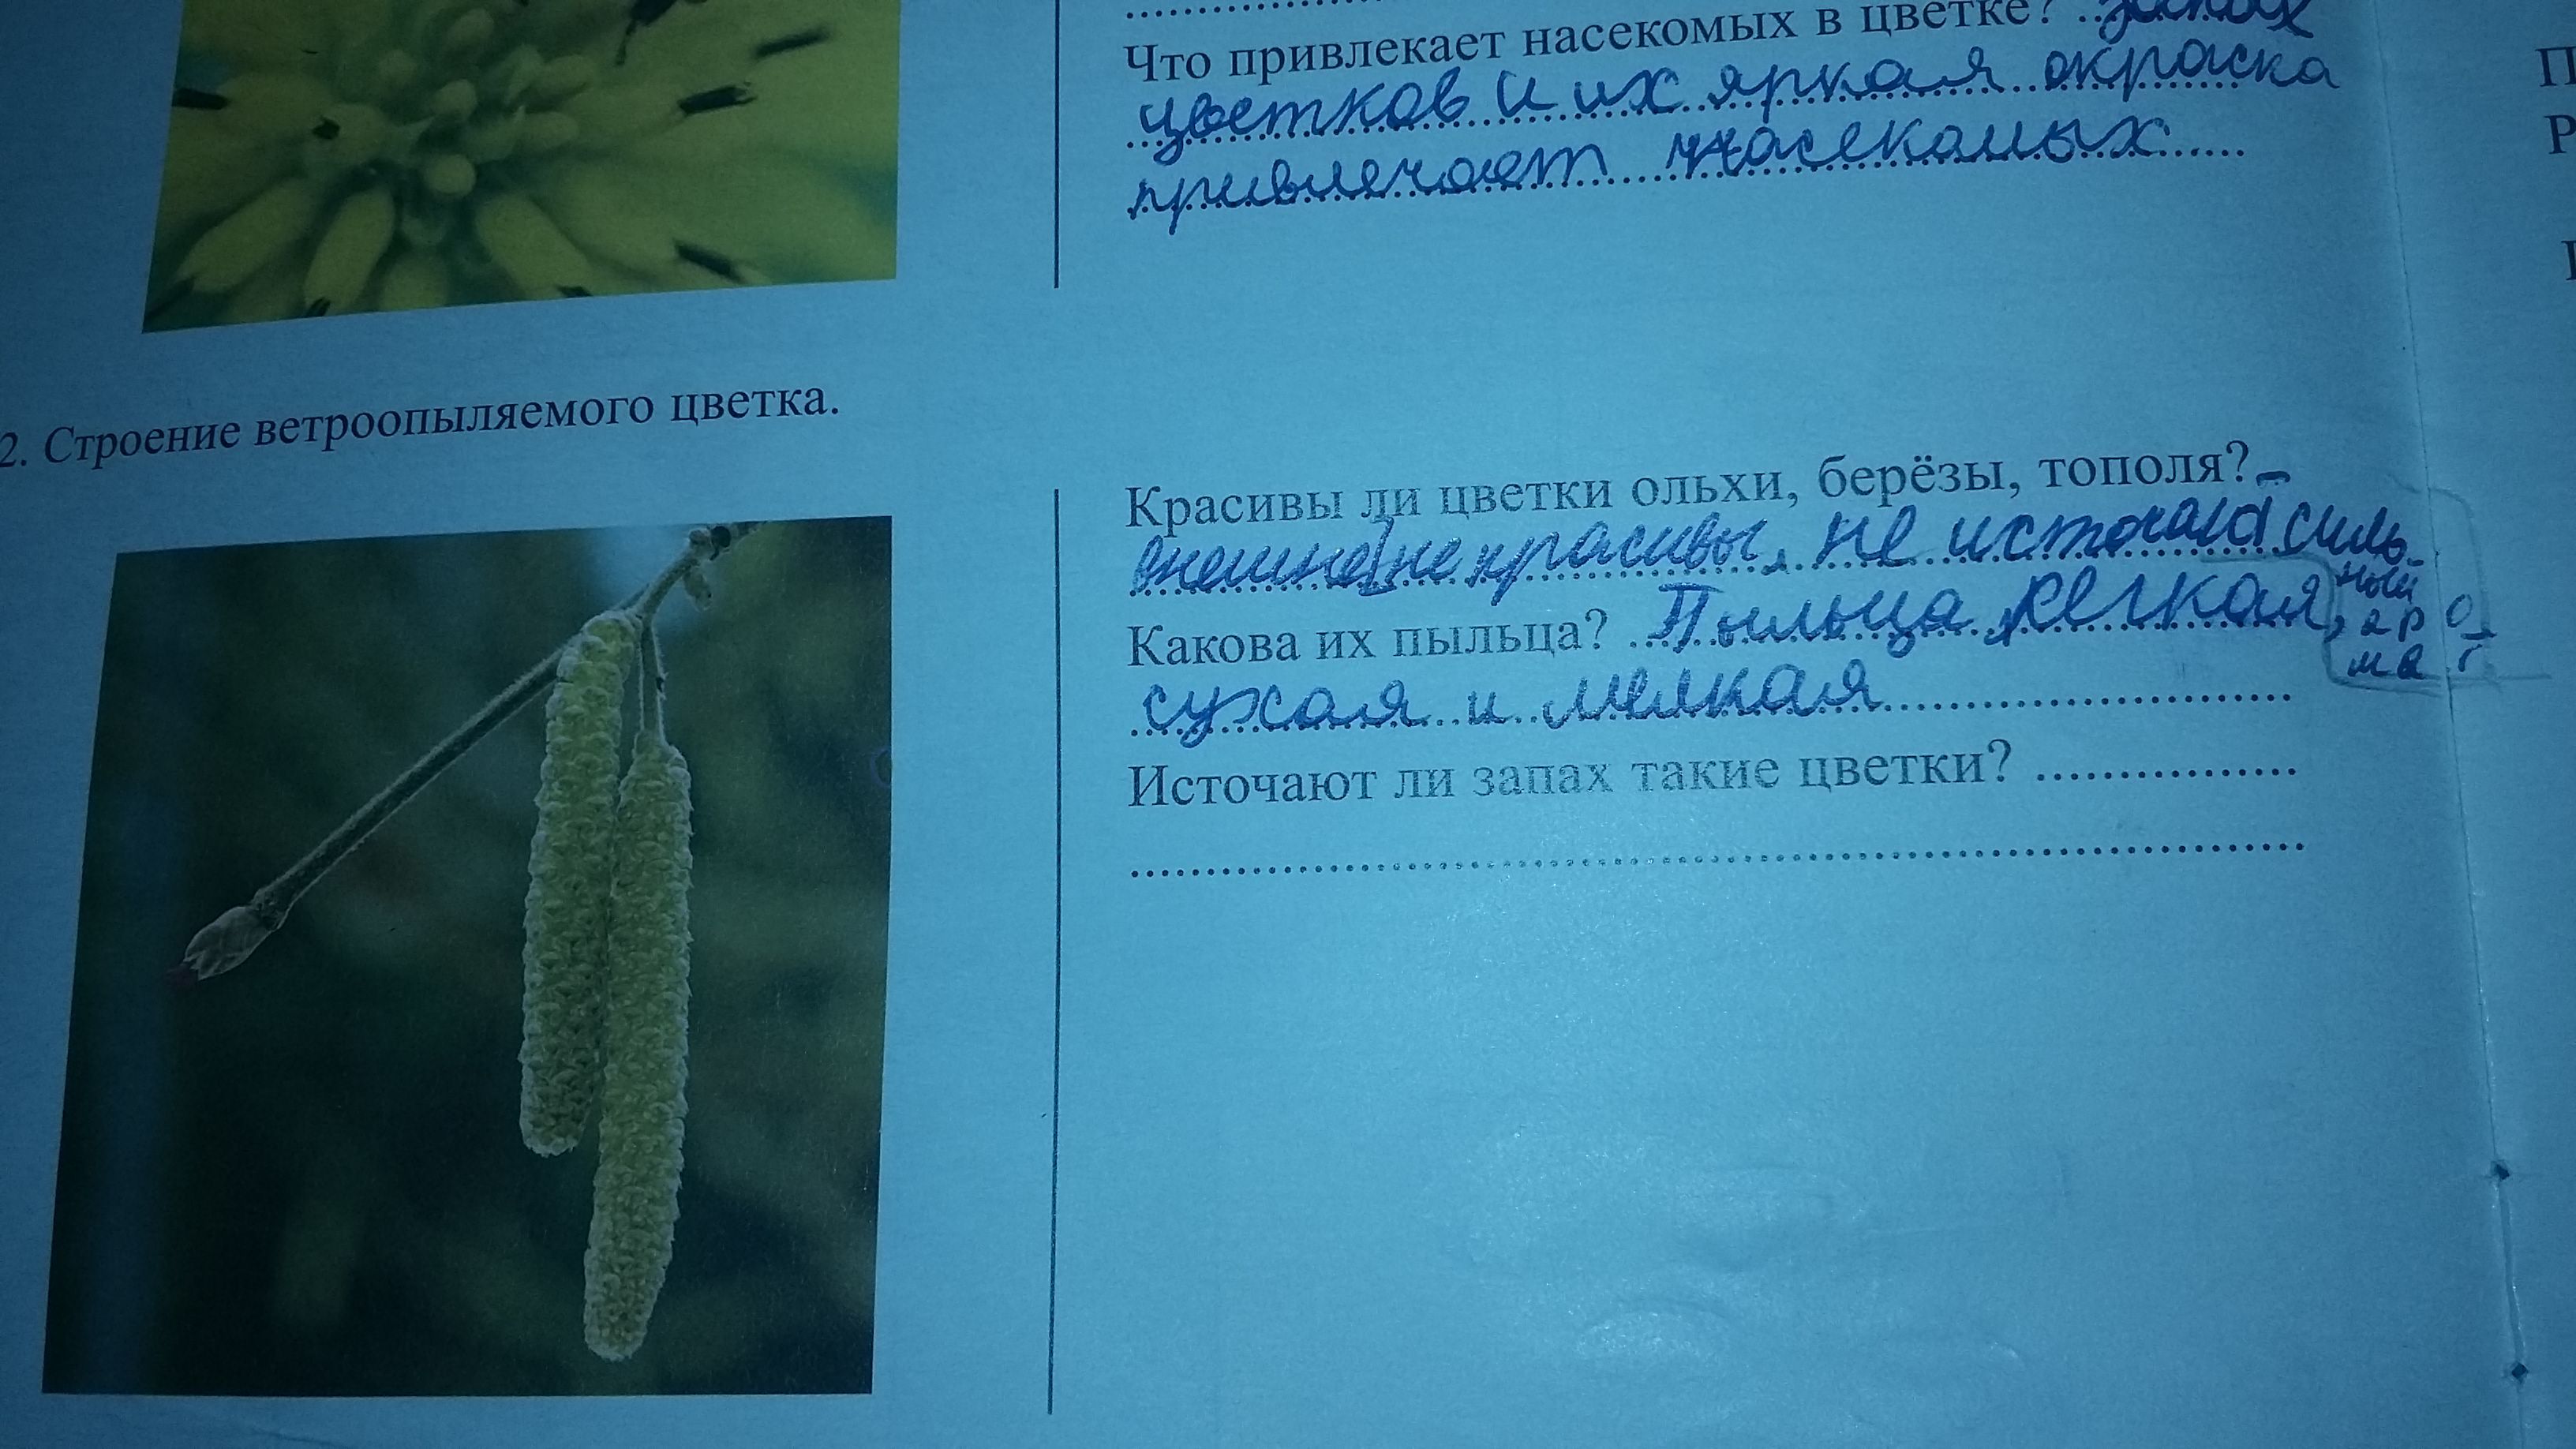 Что привлекает насекомых в цветке? запах
цветков и их яркая окраска
привлечает насекомых
2. Строение ветроопыляемого цветка.
Красивы ли цветки ольхи, берёзы, тополя? -
внешне не красивы, не источают силь-
ный
Какова их пыльца? Пыльца легкая,
аро
мат
сухая и мелкая
Источают ли запах такие цветки?
П
Р